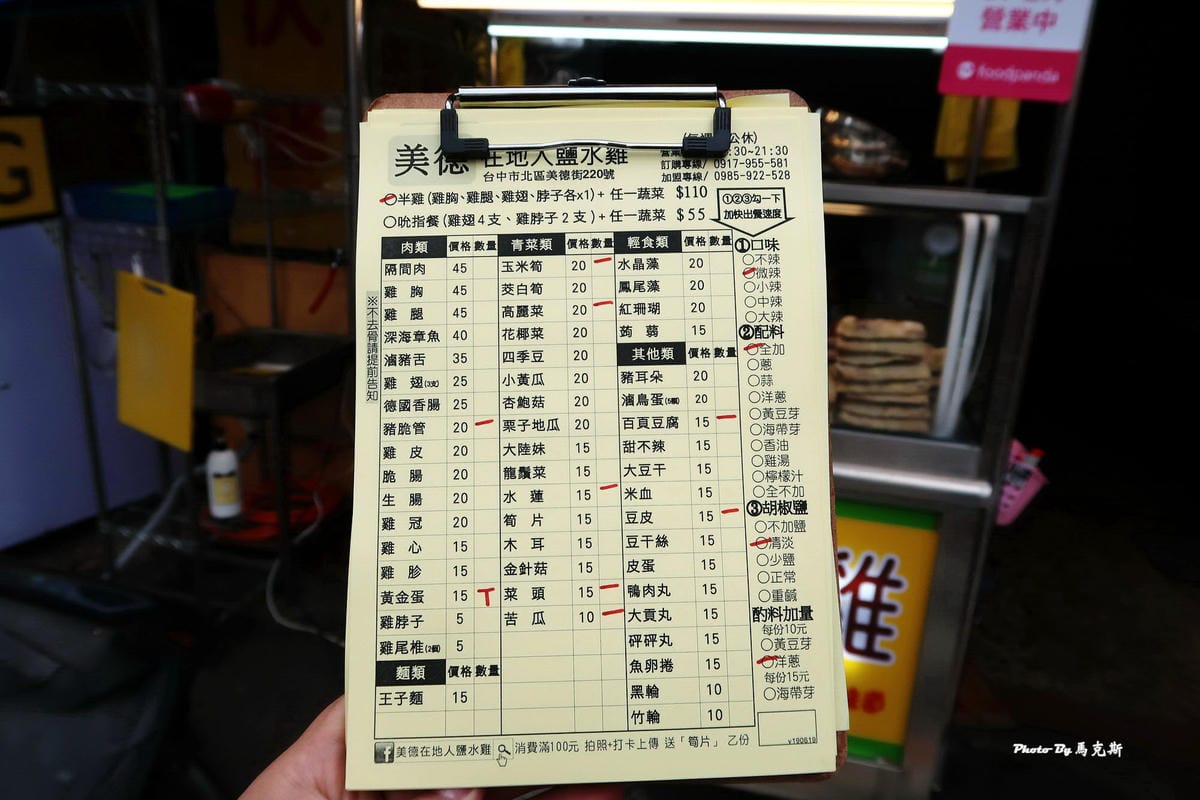 營業中
foodpanda
美德 在地人鹽水雞
台中市北區美德街220號
公休)
:30~21:30
訂購專線/ 0917-955-581
加盟專線/ 0985-922-528
○半雞(雞胸、雞腿、雞翅、脖子各x1)+ 任一蔬菜 $110
○吮指餐(雞翅4支、雞脖子2支)+ 任一蔬菜 $55
①②③勾一下
加快出餐速度
※不去骨請提前告知
肉類 價格 數量
隔間肉 45
雞胸 45
雞腿 45
深海章魚 40
滷豬舌 35
雞翅(3支) 25
德國香腸 25
豬脆管 20 一
雞皮 20
脆腸 20
生腸 20
雞冠 20
雞心 15
雞胗 15
黃金蛋 15 T
雞脖子 5
雞尾椎(2個) 5
麵類 價格 數量
王子麵 15
青菜類 價格 數量
玉米筍 20 一
茭白筍 20
高麗菜 20 一
花椰菜 20
四季豆 20
小黃瓜 20
杏鮑菇 20
栗子地瓜 20
大陸妹 15
龍鬚菜 15
水蓮 15 一
筍片 15
木耳 15
金針菇 15
菜頭 15 一
苦瓜 10 一
輕食類 價格 數量
水晶藻 20
鳳尾藻 20
紅珊瑚 20
蒟蒻 15
其他類 價格 數量
豬耳朵 20
滷鳥蛋(5個) 20
百頁豆腐 15 一
甜不辣 15
大豆干 15
米血 15
豆皮 15 一
豆干絲 15
皮蛋 15
鴨肉丸 15
大貢丸 15
砰砰丸 15
魚卵捲 15
黑輪 10
竹輪 10
①口味
○不辣
○微辣
○小辣
○中辣
○大辣
②配料
○全加
○蔥
○蒜
○洋蔥
○黃豆芽
○海帶芽
○香油
○雞湯
○檸檬汁
○全不加
③胡椒鹽
○不加鹽
○清淡
○少鹽
○正常
○重鹹
酌料加量
每份10元
○黃豆芽
○洋蔥
每份15元
○海帶芽
v190619
f 美德在地人鹽水雞 消費滿100元 拍照+打卡上傳 送「筍片」乙份
雞
Photo By 馬克斯